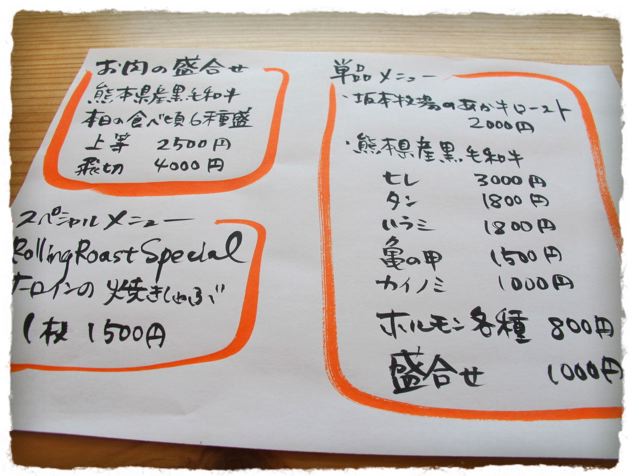 お肉の盛合せ
熊本県産黒毛和牛
本日の食べ頃6種盛
上等 2500円
飛切 4000円
スペシャルメニュー
Rolling Roast Special
サーロインの焼きしゃぶ
1枚 1500円
単品メニュー
・坂本牧場のあか牛ロースト
2000円
・熊本県産黒毛和牛
ヒレ 3000円
タン 1800円
ハラミ 1800円
亀の甲 1500円
カイノミ 1000円
ホルモン各種 800円
盛合せ 1000円